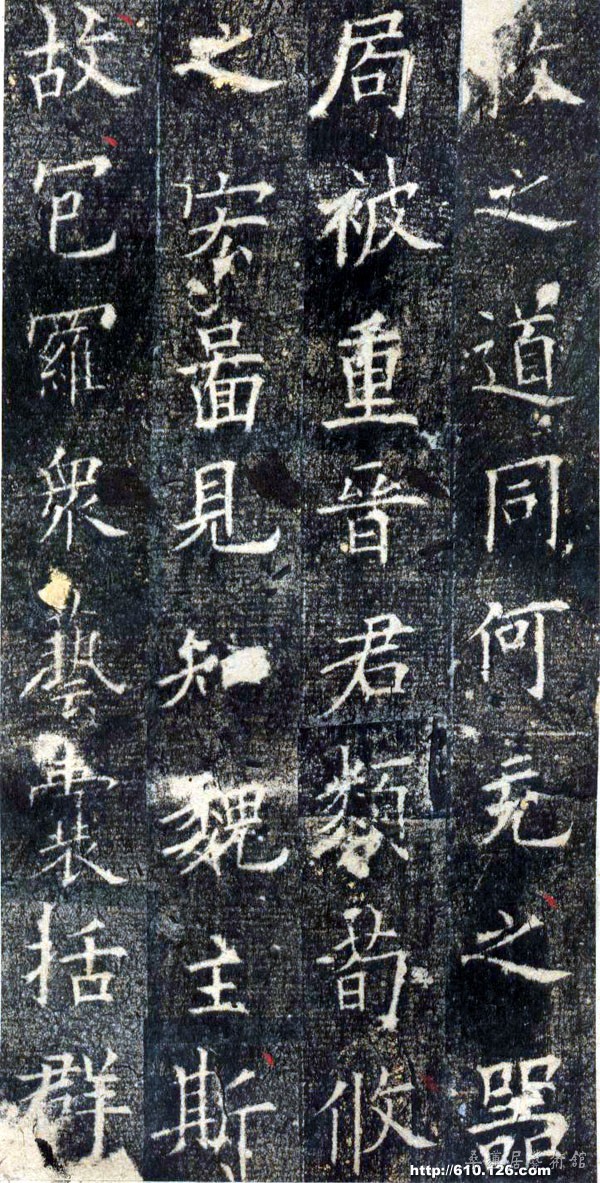 之道同何充之器
局被重晉君類荀攸
之宏圖見知魏主斯
故包羅眾藝囊括群
http://610.126.com